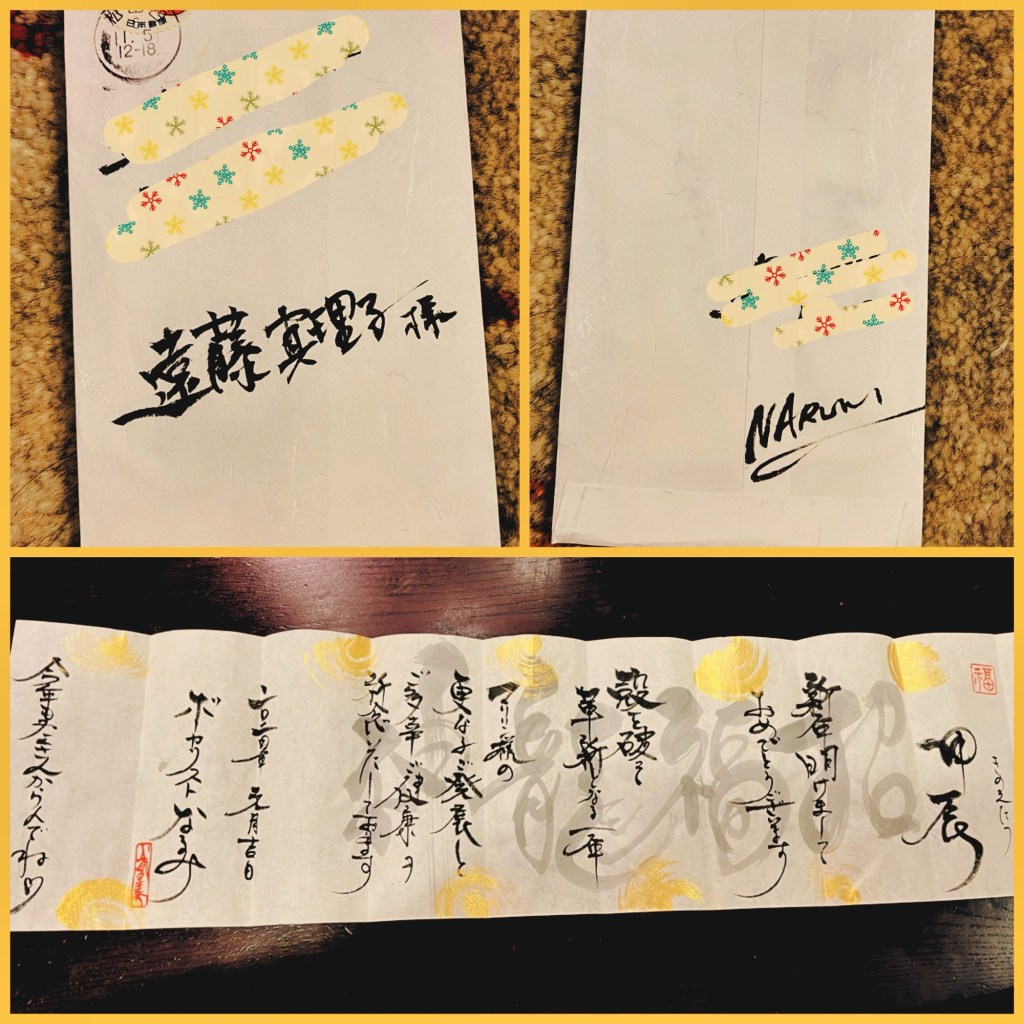 日本郵便
11. 5
12-18
遠藤真理子様
NARUMI
福
きのえたつ
甲辰
新年明けまして
おめでとうございます
殻を破って
革新となる一年
マリ
の
更なるご発展と
ご多幸ご健康を
祈念いたしております
元月吉日
ボーカリスト なるみ
招福龍